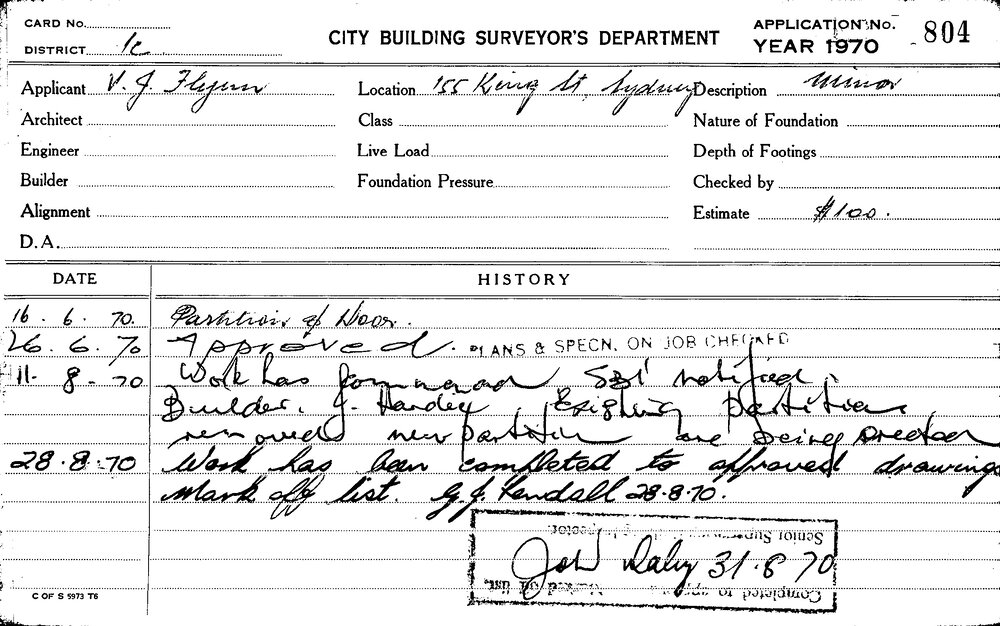 CARD No.
DISTRICT 1c
CITY BUILDING SURVEYOR'S DEPARTMENT
APPLICATION No. 804
YEAR 1970
Applicant V. J. Flynn
Location 155 King St, Sydney
Description Minor
Architect
Class
Nature of Foundation
Engineer
Live Load
Depth of Footings
Builder
Foundation Pressure
Checked by
Alignment
Estimate $100.
D.A.
DATE HISTORY
16. 6. 70. Partition & Door.
26. 6. 70 Approved. PLANS & SPECN. ON JOB CHECKED
11. 8. 70 Work has commenced SBI notified,
Builder. J. Hardie, Existing partition
removed new partition are being erected
28.8.70 Work has been completed to approved drawings
Mark off list. G.J. Kendall 28.8.70.
Senior Supervising
John Daly 31.8.70
Completed to
C OF S 5973 T6